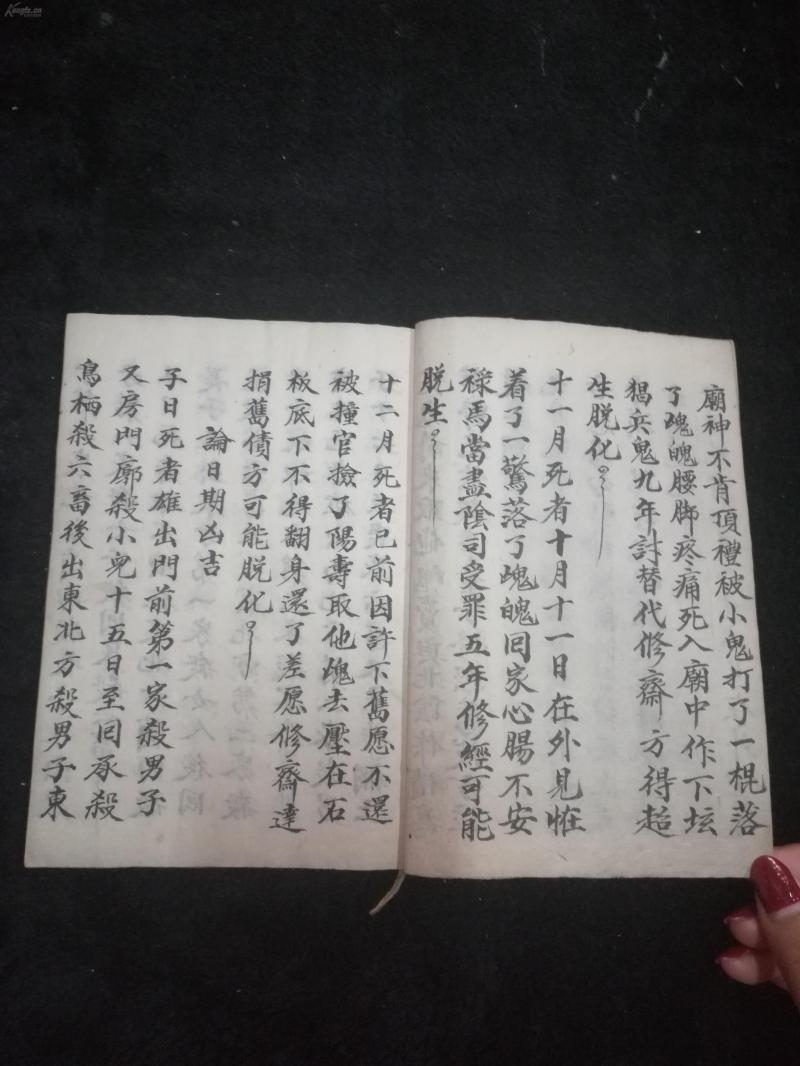 廟神不肯頂禮被小鬼打了一棍落
了魂魄腰脚疼痛死入廟中作下坛
猖兵鬼九年討替代修齋方得超
生脱化
十一月死者十月十一日在外見恠
着了一驚落了魂魄回家心腸不安
禄馬當盡陰司受罪五年修經可能
脱生
十二月死者已前因許下舊愿不還
被撞官撿了陽壽取他魂去壓在石
板底下不得翻身還了差愿修齋達
捐舊債方可能脱化
論日期凶吉
子日死者雄出門前第一家殺男子
又房門廓殺小兒十五日至回承殺
鳥栖殺六畜後出東北方殺男子東